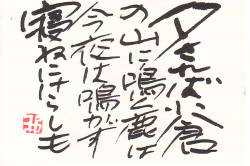 夕されば小倉
の山に鳴く鹿は
今夜は鳴かず
寝ねにけらしも